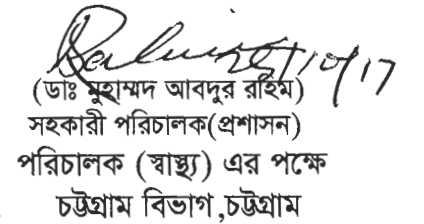 /10/17
(ডাঃ মুহাম্মদ আবদুর রহিম)
সহকারী পরিচালক(প্রশাসন)
পরিচালক (স্বাস্থ্য) এর পক্ষে
চট্টগ্রাম বিভাগ,চট্টগ্রাম